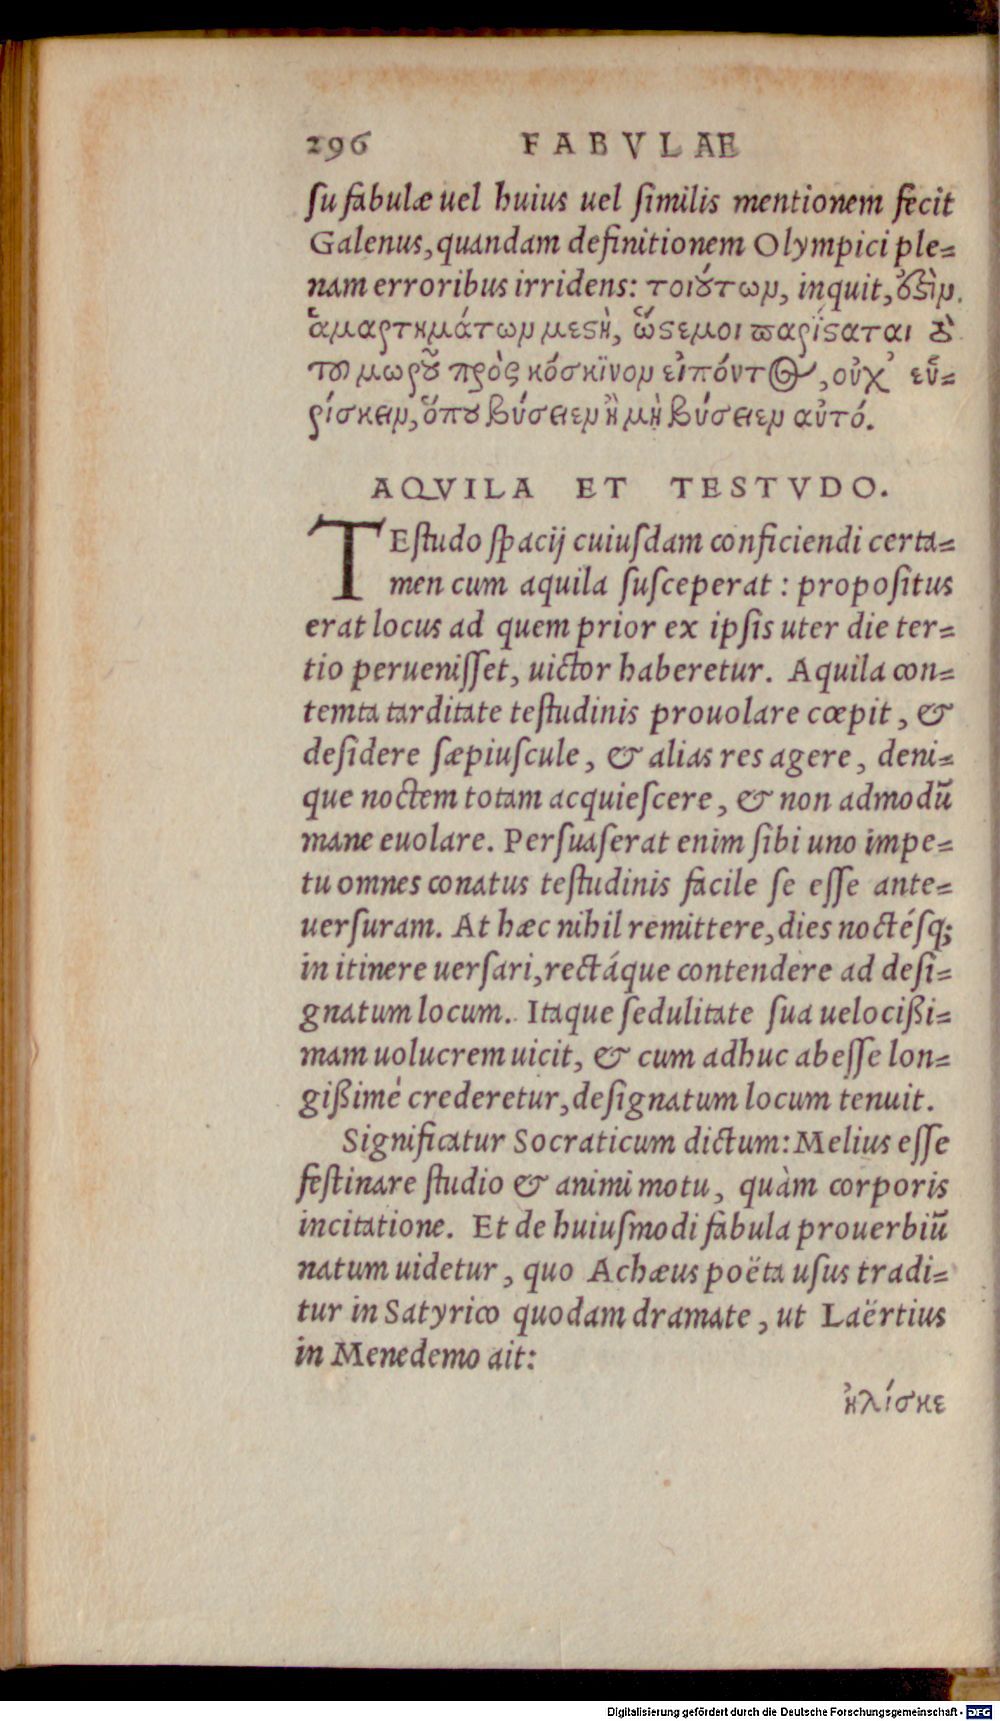 296 FABVLAE
ſu fabulæ uel huius uel ſimilis mentionem fecit
Galenus, quandam definitionem Olympici ple=
nam erroribus irridens: τοιούτων, inquit, ὅϛὶν
ἁμαρτημάτων μεϛὴ, ὥϛεμοι παρίϛαται τὸ
τοῦ μωροῦ πρὸς κόσκϊνον εἰπόντος, οὐχ᾽ εὑ=
ρίσκειν, ὅπου βύσειεν ἢ μὴ βύσειεν αὐτό.
AQVILA ET TESTVDO.
TEſtudo ſpacij cuiuſdam conficiendi certa=
men cum aquila ſuſceperat: propoſitus
erat locus ad quem prior ex ipſis uter die ter=
tio perueniſſet, uictor haberetur. Aquila con=
temta tarditate teſtudinis prouolare cœpit, &
deſidere ſæpiuſcule, & alias res agere, deni=
que noctem totam acquieſcere, & non admodū
mane euolare. Perſuaſerat enim ſibi uno impe=
tu omnes conatus teſtudinis facile ſe eſſe ante=
uerſuram. At hæc nihil remittere, dies noctéſq;
in itinere uerſari, rectáque contendere ad deſi=
gnatum locum. Itaque ſedulitate ſua uelocißi=
mam uolucrem uicit, & cum adhuc abeſſe lon=
gißimè crederetur, deſignatum locum tenuit.
Significatur Socraticum dictum: Melius eſſe
feſtinare ſtudio & animi motu, quàm corporis
incitatione. Et de huiuſmodi fabula prouerbiū
natum uidetur, quo Achæus poëta uſus tradi=
tur in Satyrico quodam dramate, ut Laërtius
in Menedemo ait:
ἡλίσκε
Digitalisierung gefördert durch die Deutsche Forschungsgemeinschaft - DFG